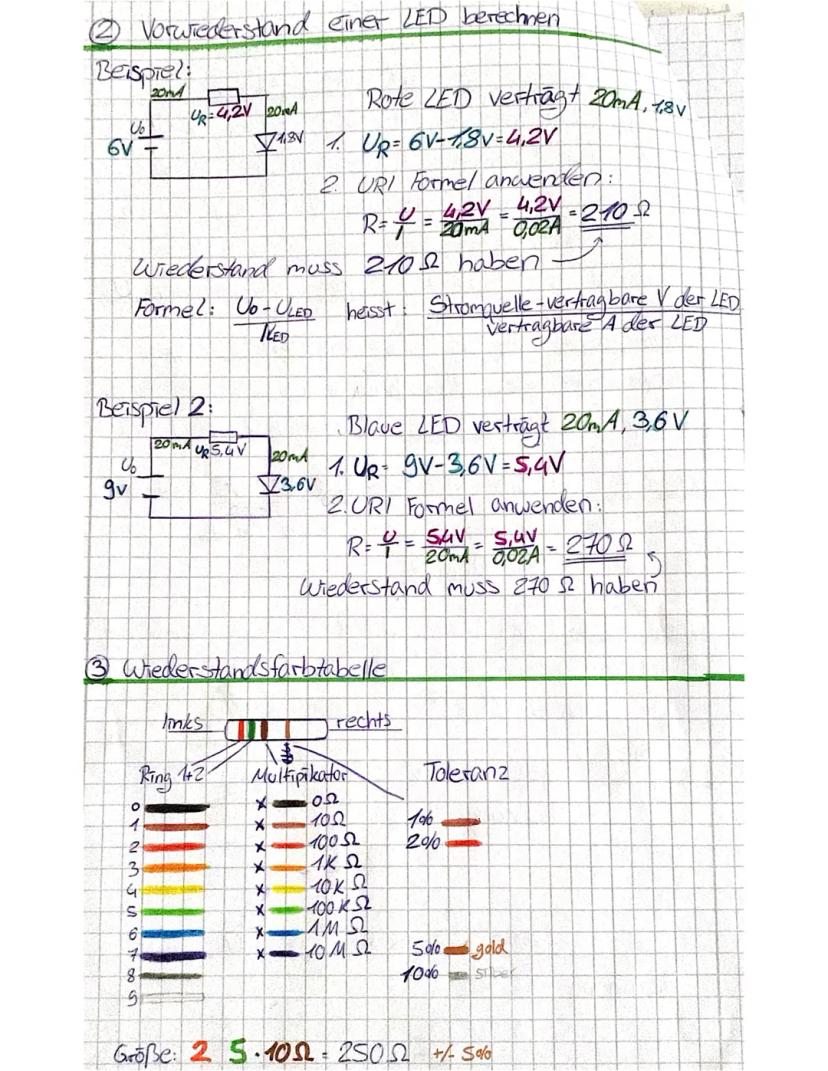 ② Vorwiederstand einer LED berechnen
Beispiel:
20mA
UR=4,2V 20mA
U0
6V
1,8V
Rote LED verträgt 20mA, 1,8V
1. UR= 6V-1,8V=4,2V
2. URI Formel anwenden:
R= U/I = 4,2V/20mA = 4,2V/0,02A = 210 Ω
Wiederstand muss 210 Ω haben
Formel: U0 - ULED / ILED heisst: Stromquelle-vertragbare V der LED / vertragbare A der LED
Beispiel 2:
20mA UR5,4V 20mA
U0
9V
3,6V
Blaue LED verträgt 20mA, 3,6V
1. UR= 9V-3,6V=5,4V
2. URI Formel anwenden:
R= U/I = 5,4V/20mA = 5,4V/0,02A = 270 Ω
Wiederstand muss 270 Ω haben
③ Wiederstandsfarbtabelle
links rechts
Ring 1+2 Multipikator Toleranz
0 x 0Ω
1 x 10Ω 1%
2 x 100Ω 2%
3 x 1K Ω
4 x 10K Ω
5 x 100K Ω
6 x 1M Ω
7 x 10M Ω 5% gold
8 10% silber
9
Größe: 2 5 · 10Ω = 250Ω +/- 5%